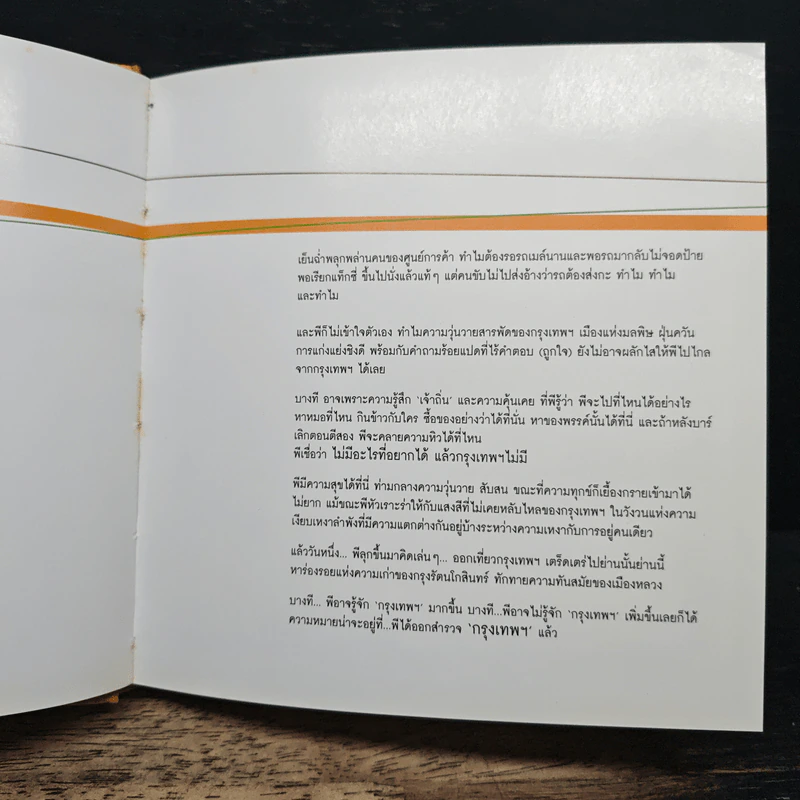 เย็นฉ่ำพลุกพล่านคนของศูนย์การค้า ทำไมต้องรอรถเมล์นานและพอรถมากลับไม่จอดป้าย
พอเรียกแท็กซี่ ขึ้นไปนั่งแล้วแท้ๆ แต่คนขับไม่ไปส่งอ้างว่ารถต้องส่งกะ ทำไม ทำไม
และทำไม
และพีก็ไม่เข้าใจตัวเอง ทำไมความวุ่นวายสารพัดของกรุงเทพฯ เมืองแห่งมลพิษ ฝุ่นควัน
การแก่งแย่งชิงดี พร้อมกับคำถามร้อยแปดที่ไร้คำตอบ (ถูกใจ) ยังไม่อาจผลักไสให้พีไปไกล
จากกรุงเทพฯ ได้เลย
บางที อาจเพราะความรู้สึก 'เจ้าถิ่น' และความคุ้นเคย ที่พีรู้ว่า พีจะไปที่ไหนได้อย่างไร
หาหมอที่ไหน กินข้าวกับใคร ซื้อของอย่างว่าได้ที่นั่น หาของพรรค์นั้นได้ที่นี่ และถ้าหลังบาร์
เลิกตอนตีสอง พีจะคลายความหิวได้ที่ไหน
พีเชื่อว่า ไม่มีอะไรที่อยากได้ แล้วกรุงเทพฯไม่มี
พีมีความสุขได้ที่นี่ ท่ามกลางความวุ่นวาย สับสน ขณะที่ความทุกข์ก็เยื้องกรายเข้ามาได้
ไม่ยาก แม้ขณะพีหัวเราะร่าให้กับแสงสีที่ไม่เคยหลับใหลของกรุงเทพฯ ในวังวนแห่งความ
เงียบเหงาลำพังที่มีความแตกต่างกันอยู่บ้างระหว่างความเหงากับการอยู่คนเดียว
แล้ววันหนึ่ง... พีลุกขึ้นมาคิดเล่นๆ... ออกเที่ยวกรุงเทพฯ เตร็ดเตร่ไปย่านนั้นย่านนี้
หาร่องรอยแห่งความเก่าของกรุงรัตนโกสินทร์ ทักทายความทันสมัยของเมืองหลวง
บางที... พีอาจรู้จัก 'กรุงเทพฯ' มากขึ้น บางที...พีอาจไม่รู้จัก 'กรุงเทพฯ' เพิ่มขึ้นเลยก็ได้
ความหมายน่าจะอยู่ที่...พีได้ออกสำรวจ 'กรุงเทพฯ' แล้ว